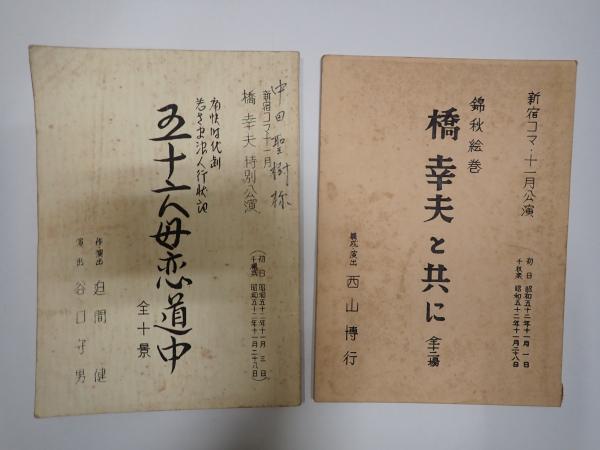 中田聖樹様
新宿コマ十一月
橋幸夫特別公演
(初日 昭和五十二年十一月三日
千穐楽 昭和五十二年十一月二十八日)
痛快時代劇
若さま浪人行状記
五十六人母恋道中
全十景
作・演出 迫間健
演出 谷口守男
新宿コマ・十一月公演
初日 昭和五十二年十一月一日
千秋楽 昭和五十二年十一月二十八日
錦秋絵巻
橋幸夫と共に
全十二場
構成・演出 西山博行